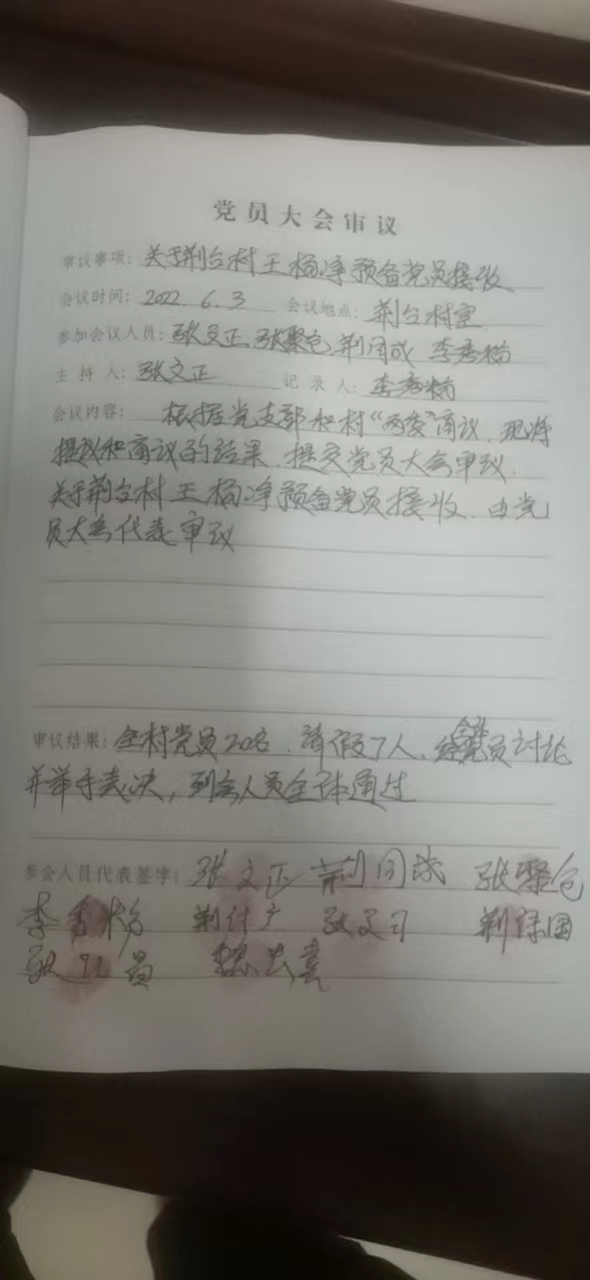 党员大会审议
审议事项：关于荆台村王杨净预备党员接收
会议时间：2022.6.3 会议地点：荆台村室
参加会议人员：张文正 张聚仓 荆同成 李秀
主持人：张文正 记录人：李秀
会议内容：根据党支部和村“两委”商议，现将
提议和商议的结果，提交党员大会审议，
关于荆台村王杨净预备党员接收，由党
员大会代表审议
审议结果：全村党员20名，请假7人，经全体党员讨论
并举手表决，到会人员全体通过
参会人员代表签字：张文正 荆同成 张聚仓
李秀 荆计 张文 荆保国
张 员